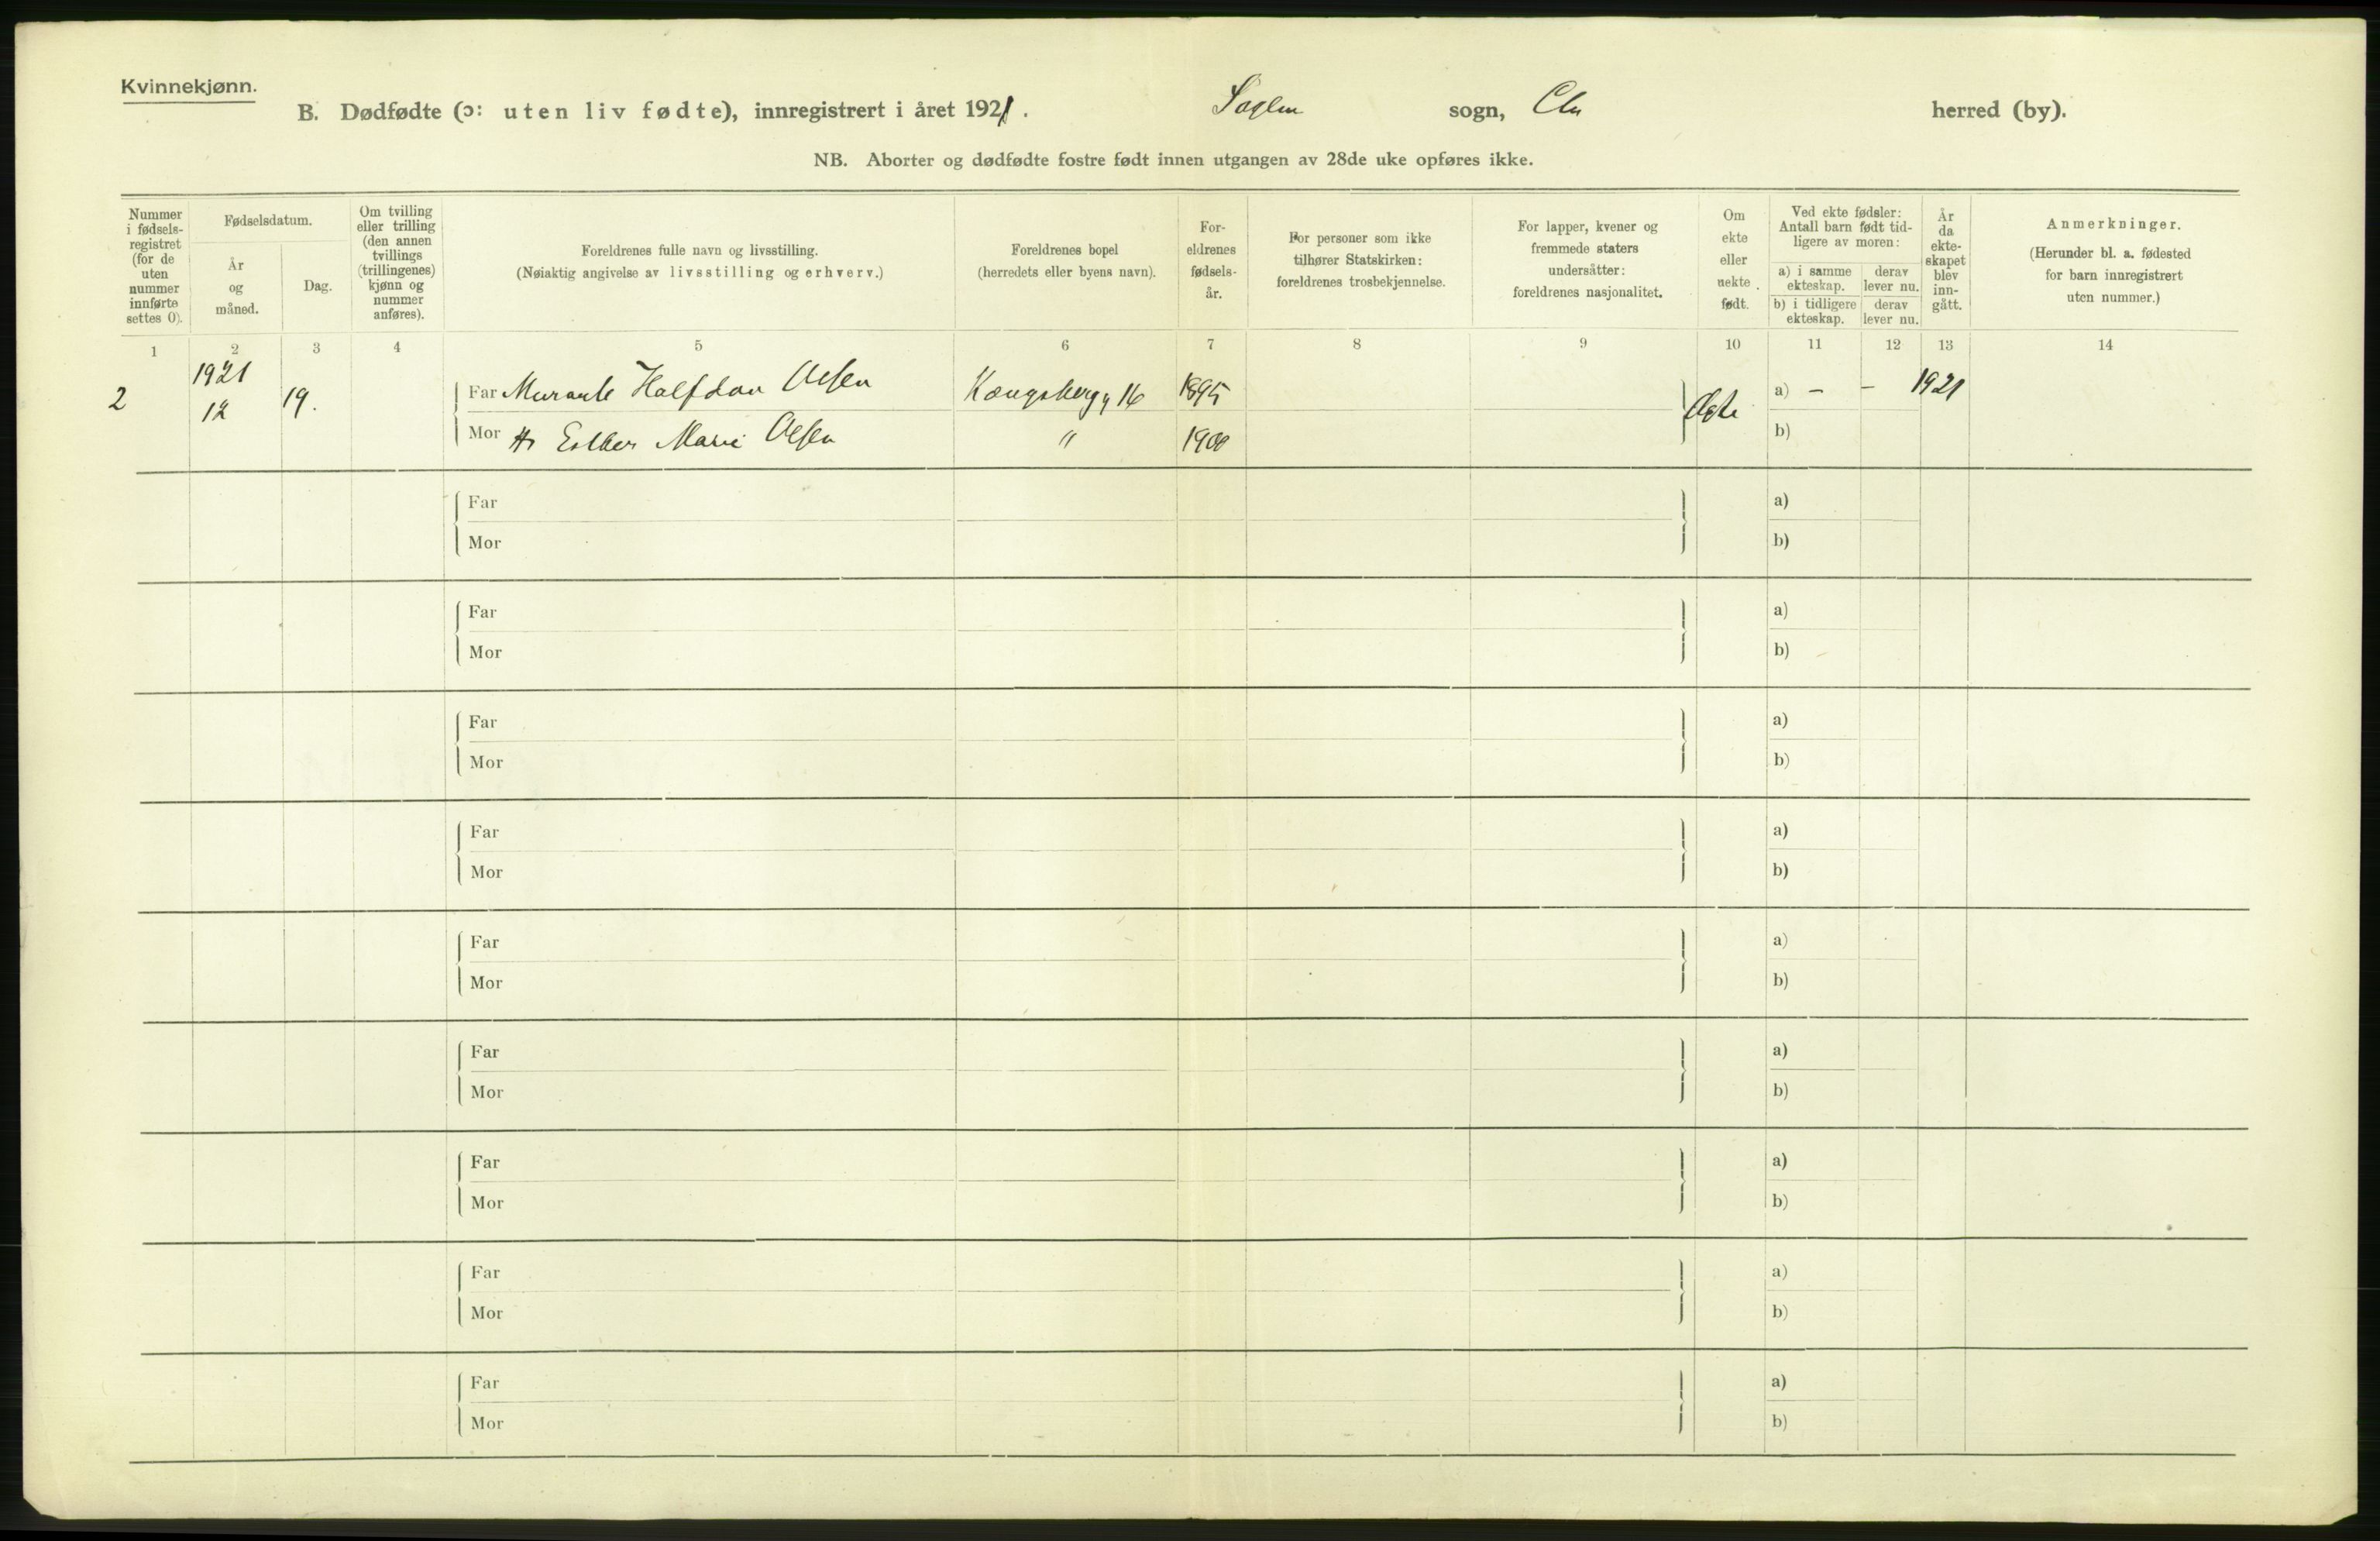 Kvinnekjønn.
B. Dødfødte (ɔ: uten liv fødte), innregistrert i året 1921. Sagene sogn, Chr herred (by).
NB. Aborter og dødfødte fostre født innen utgangen av 28de uke opføres ikke.
Nummer
i fødsels-
registret
(for de
uten
nummer
innførte
settes 0).
Fødselsdatum.
År
og
måned.
Dag.
Om tvilling
eller trilling
(den annen
tvillings
(trillingenes)
kjønn og
nummer
anføres).
Foreldrenes fulle navn og livsstilling.
(Nøiaktig angivelse av livsstilling og erhverv.)
Foreldrenes bopel
(herredets eller byens navn).
For-
eldrenes
fødsels-
år.
For personer som ikke
tilhører Statskirken:
foreldrenes trosbekjennelse.
For lapper, kvener og
fremmede staters
undersåtter:
foreldrenes nasjonalitet.
Om
ekte
eller
uekte
født.
Ved ekte fødsler:
Antall barn født tid-
ligere av moren:
a) i samme
ekteskap.
derav
lever nu.
b) i tidligere
ekteskap.
derav
lever nu.
År
da
ekte-
skapet
blev
inn-
gått.
Anmerkninger.
(Herunder bl. a. fødested
for barn innregistrert
uten nummer.)
1 2 3 4 5 6 7 8 9 10 11 12 13 14
1921
2 12 19. Far Murarb Halfdan Olsen 1895 Ægte a) – – 1921
Mor Esther Marie Olsen " 1900 b)
Far a)
Mor b)
Far a)
Mor b)
Far a)
Mor b)
Far a)
Mor b)
Far a)
Mor b)
Far a)
Mor b)
Far a)
Mor b)
Far a)
Mor b)
Far a)
Mor b)